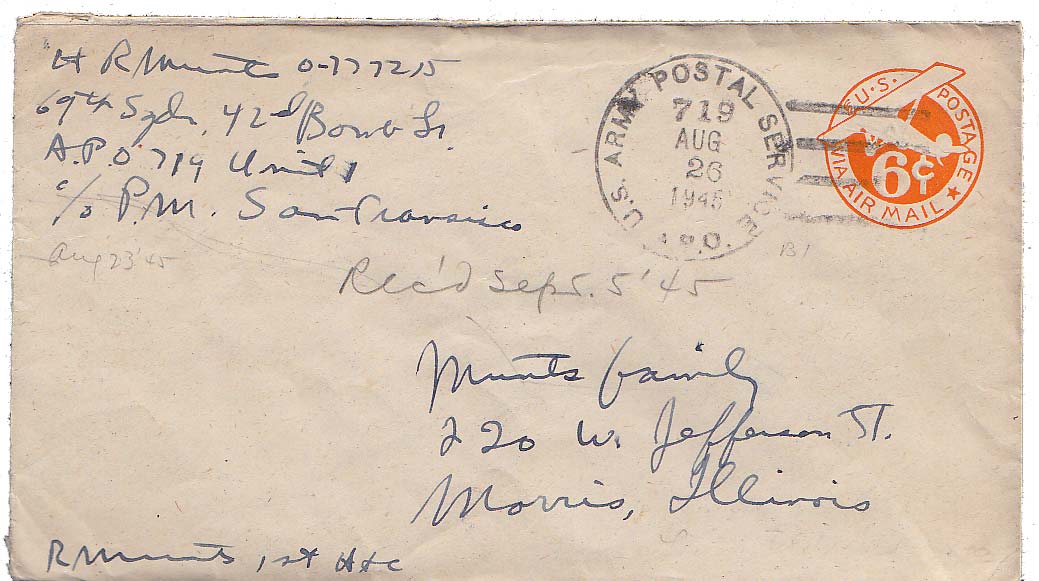 H R Munts O-777215
69th Sqdn, 42d Bomb Gr.
A.P.O 719 Unit 1
c/o P.M. San Francisco
Aug 23 '45
U.S. ARMY POSTAL SERVICE
719
AUG
26
1945
A.P.O.
U.S. POSTAGE
6¢
VIA AIR MAIL
B1
Rec'd Sept. 5 '45
Munts family
220 W. Jefferson St.
Morris, Illinois
R Munts, 1st